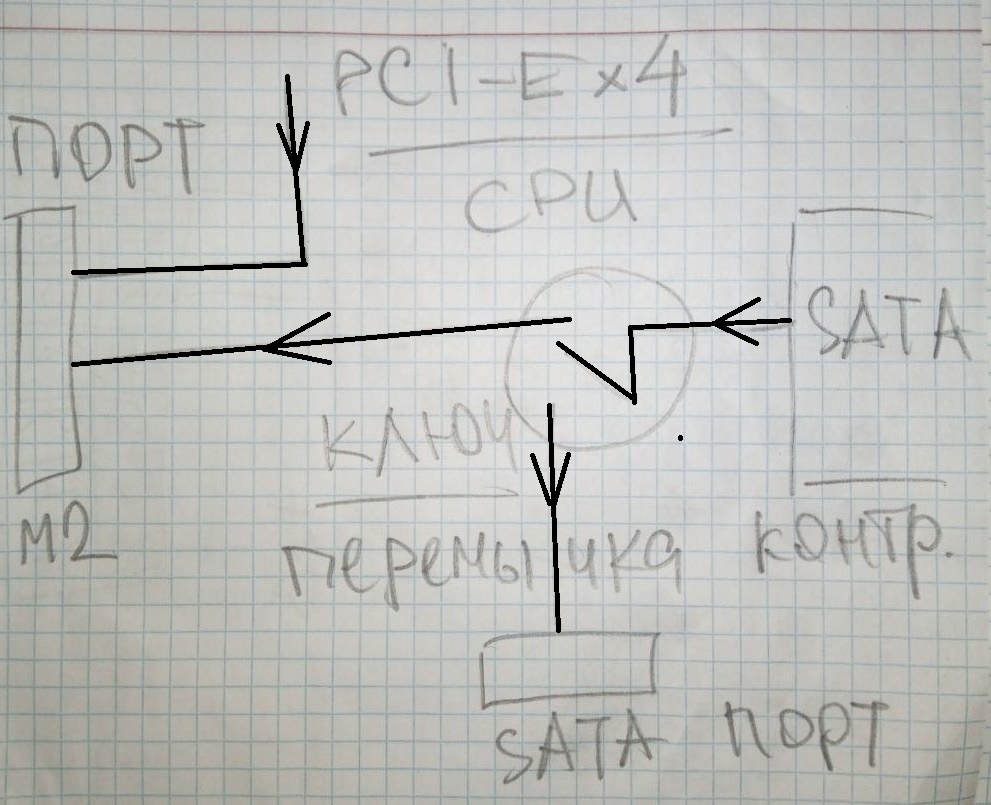 PCI-Ex4
CPU
ПОРТ
M2
SATA
КОНТР.
КЛЮЧ
перемычка
SATA ПОРТ